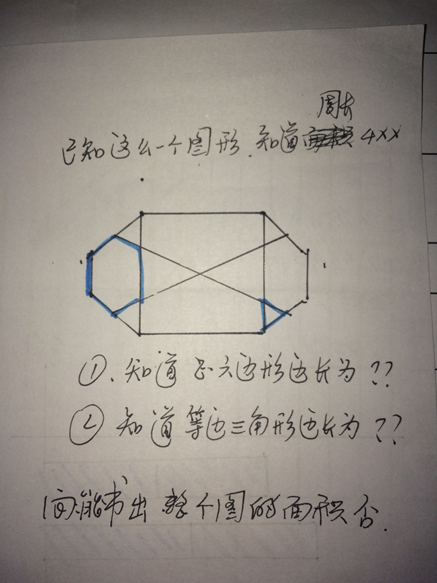 周长
已知这么一个图形.知道面积4XX
①.知道正六边形边长为??
②知道等边三角形边长为??
问:能求出整个图的面积否.